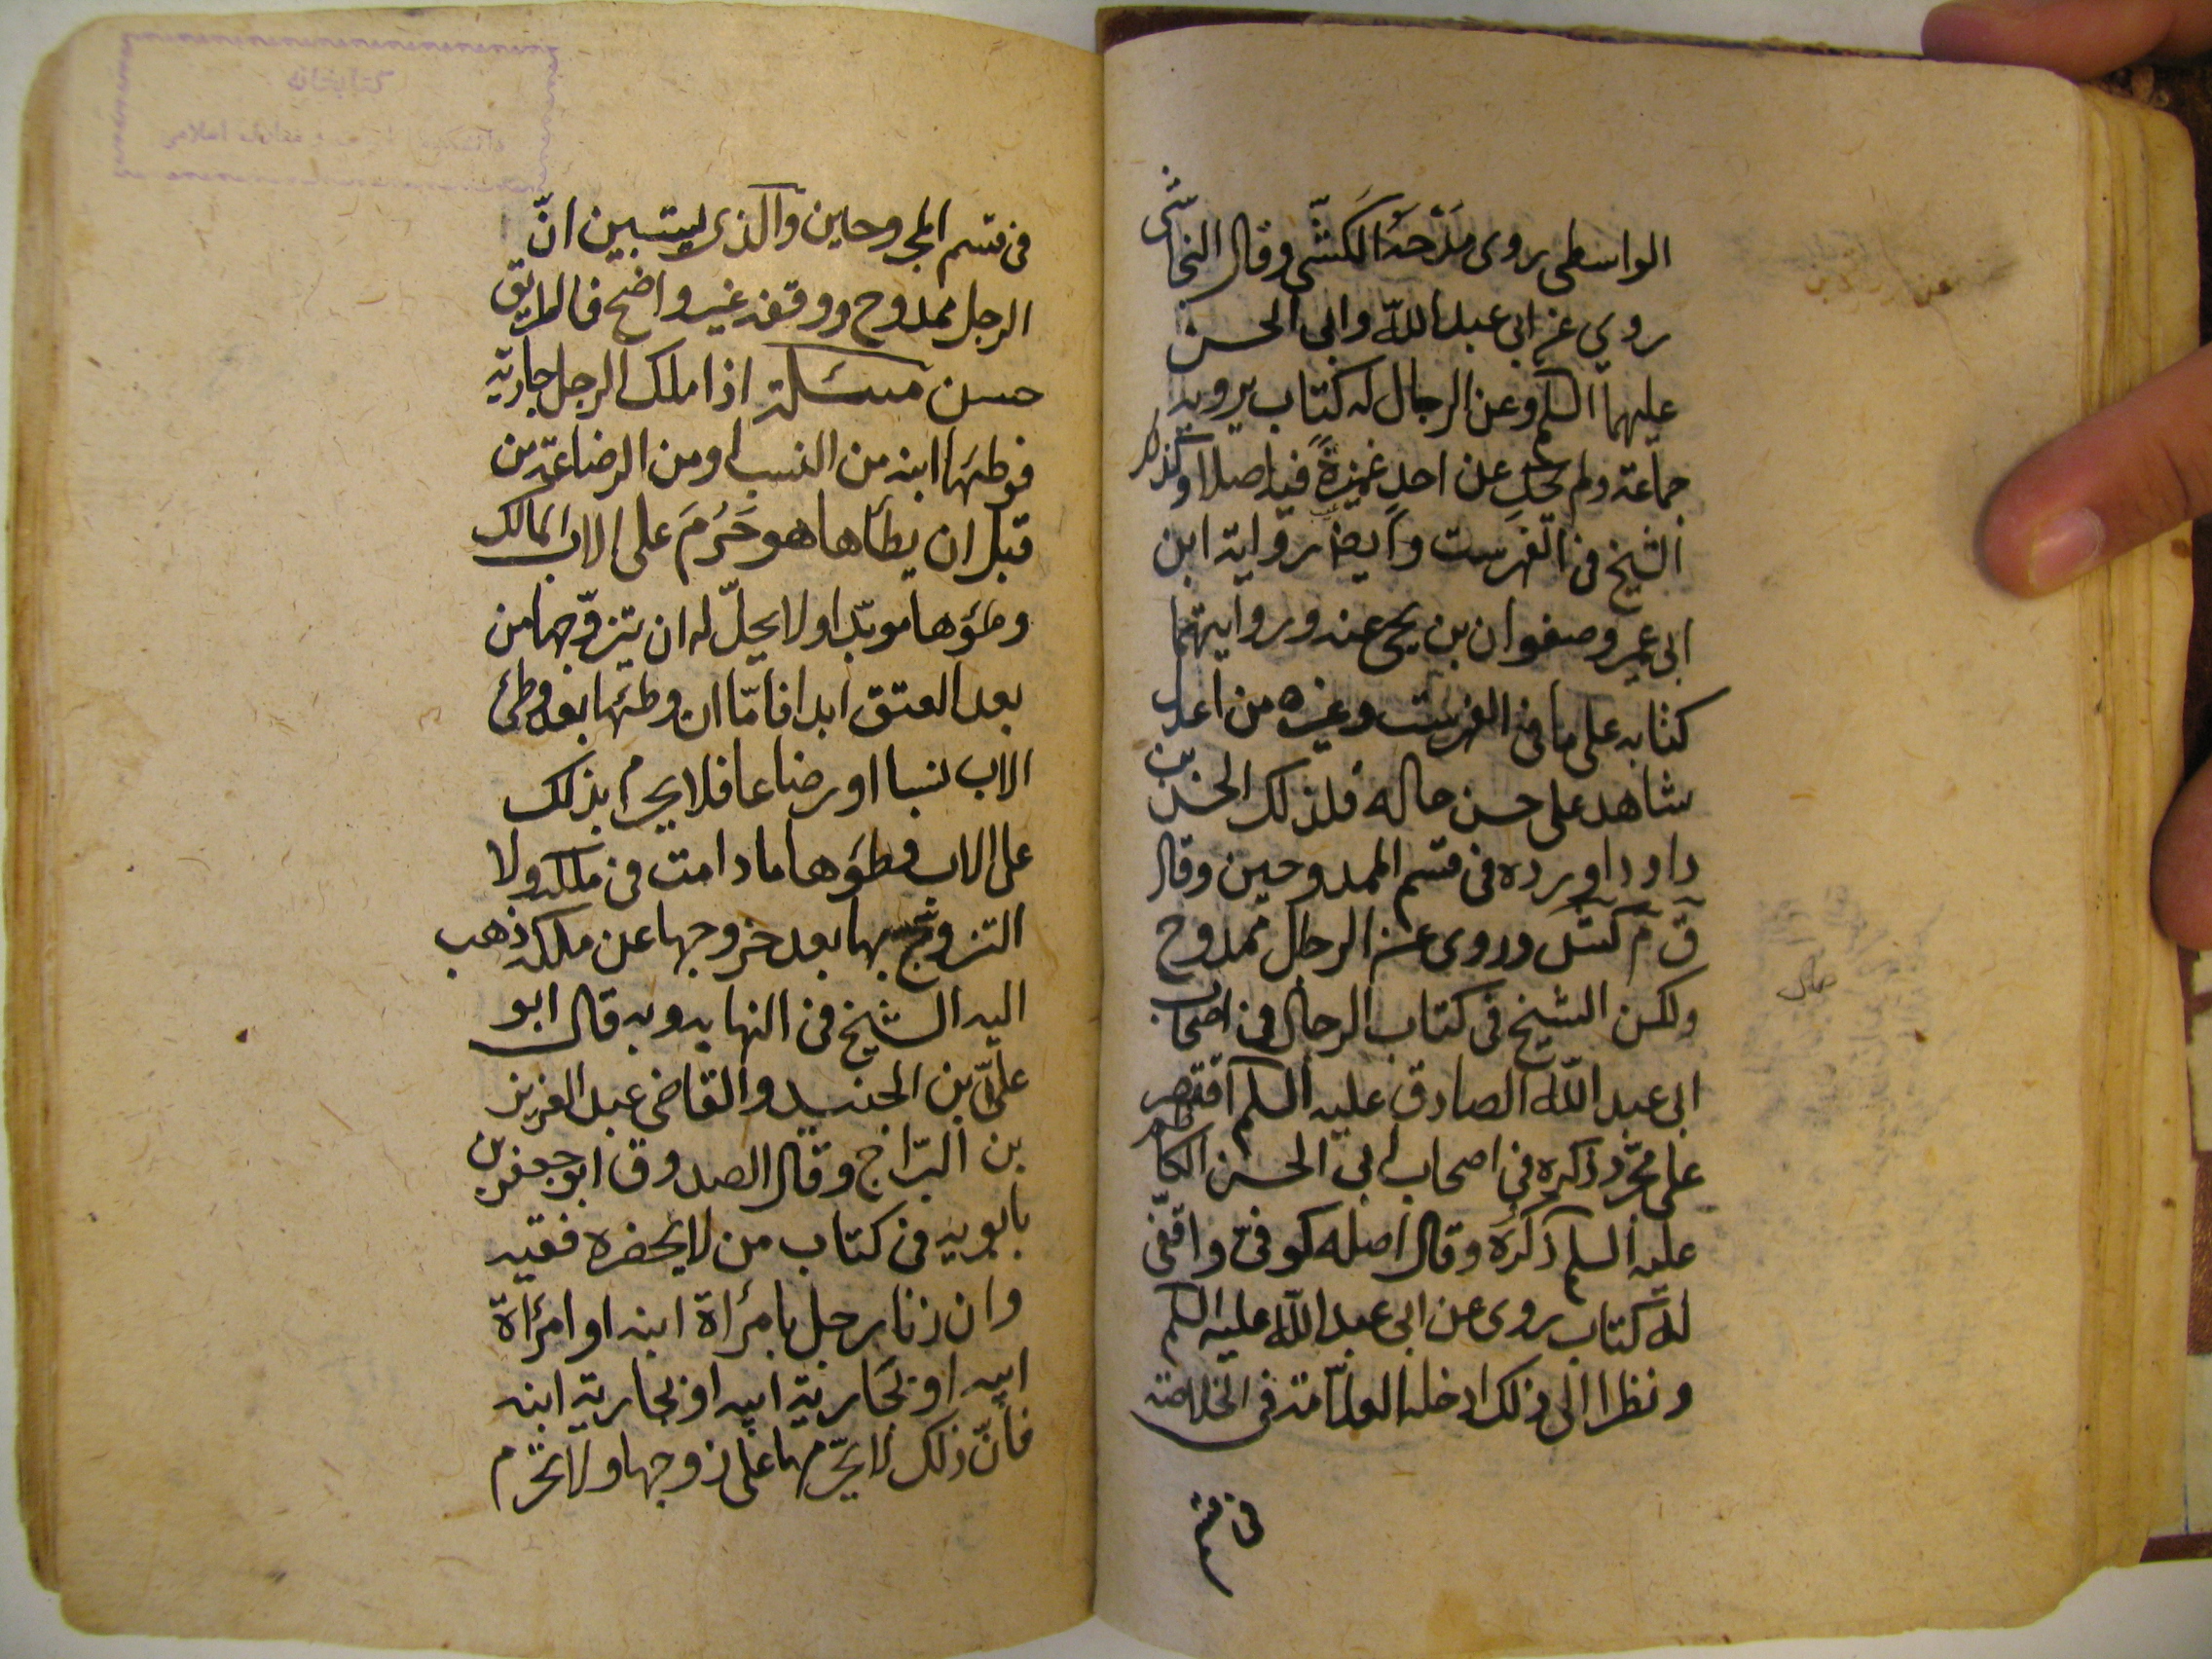 الواسطى روى مَدْحَهُ الكَشّى وقال النجاشى
روى عن ابى عبد الله وابى الحسن
عليهما السلم وعن الرجال له كتاب يرويه
جماعة ولم يحكِ عن احدٍ غميزةً فيه اصلا وكذلك
الشيخ فى الفهرست وايضا رواية ابن
ابى عمير وصفوان بن يحيى عنه وروايتهما
كتابه على ما فى الفهرست وغيره من اعدل
شاهد على حسن حاله فلذلك الحسن بن
داود اورده فى قسم الممدوحين وقال
ق م كش وروى عن الرجال ممدوح
ولكن الشيخ فى كتاب الرجال فى اصحاب
ابى عبد الله الصادق عليه السلم اقتصر
على مجرّد ذكره فى اصحاب ابى الحسن الكاظم
عليه السلم ذكره وقال اصله كوفىّ واقفّى
له كتاب روى عن ابى عبد الله عليه السلم
ونظرا الى ذلك ادخله العلّامة فى الخلاصة
فى قسم
فى قسم المجروحين والذى يستبين انّ
الرجل ممدوح ووقفه غير واضح فالطريق
حسن مسئلة اذا ملك الرجل جارية
فوطئها ابنه من النسب او من الرضاعة من
قبل ان يطأها هو حَرُمَ على الاب المالك
وطؤها مويّدا ولا يحلّ له ان يتزوّجها من
بعد العتق ابدا فامّا ان وطئها بعد وطئ
الاب نسبا او رضاعا فلا يحرم بذلك
على الاب وطؤها ما دامت فى ملكه ولا
التزويج بها بعد خروجها عن ملكه ذهب
اليه الشيخ فى النهايه وبه قال ابو
علىّ بن الجنيد والقاضى عبد العزيز
بن البرّاج وقال الصدوق ابو جعفر بن
بابويه فى كتاب من لا يحضره فقيه
وان زنا رجل بامرأة ابنه او امرأة
ابيه او بجارية ابيه او بجارية ابنه
فانّ ذلك لا يحرّمها على زوجها ولا تحرم
كتابخانه